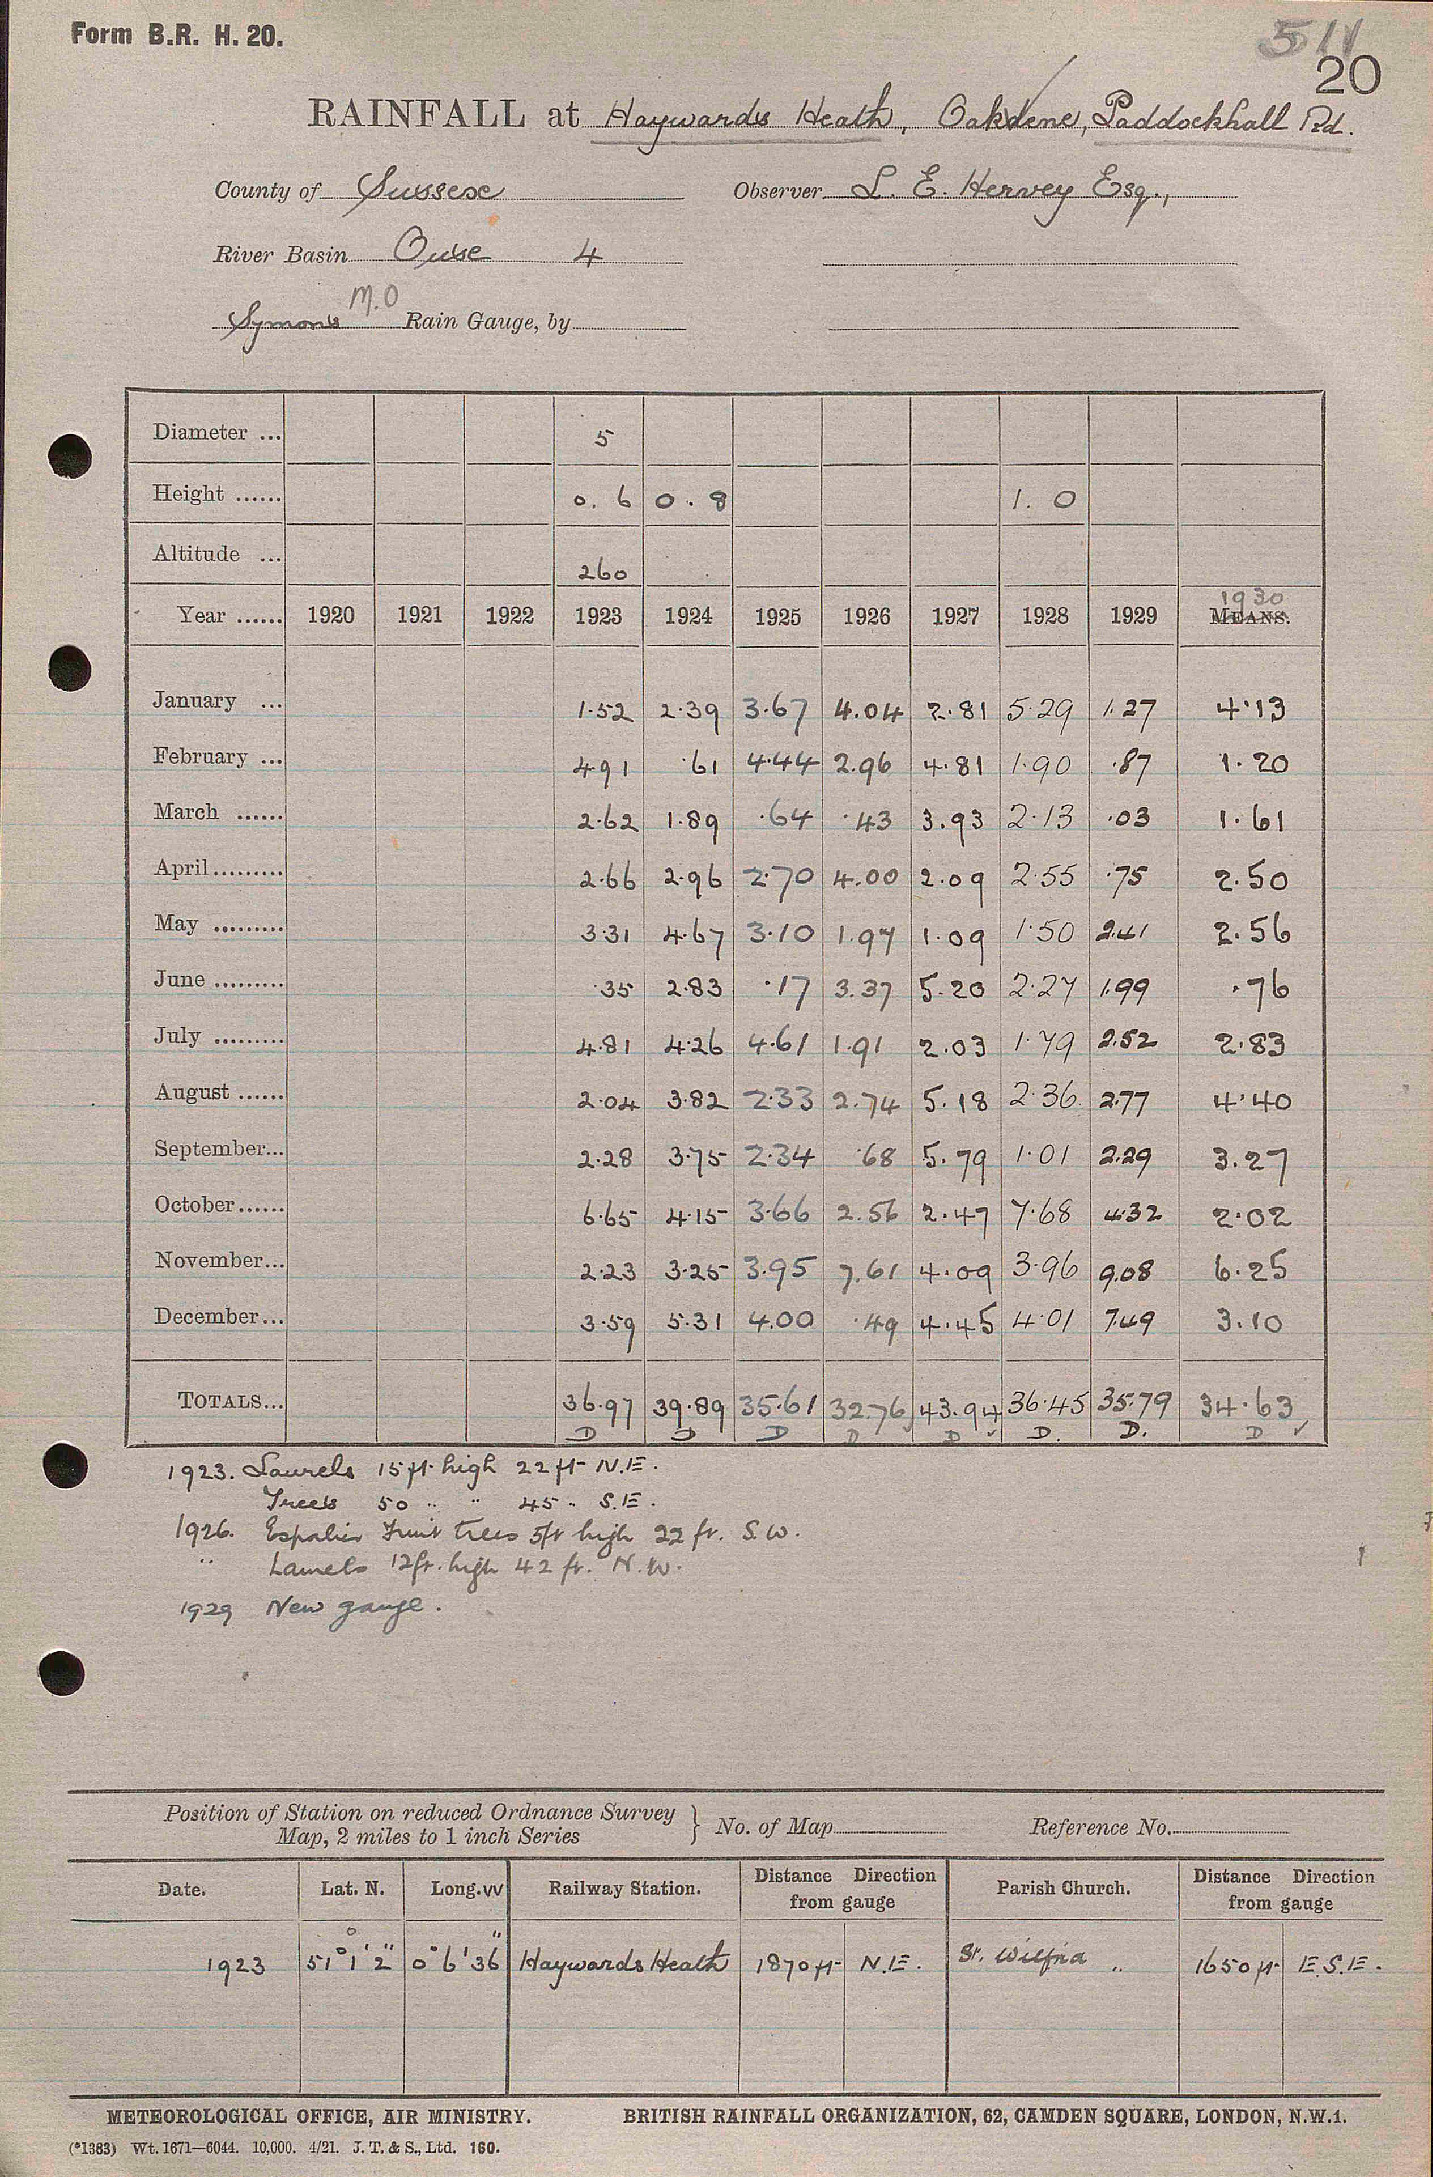 Form B.R. H. 20.
511
20
RAINFALL at Haywards Heath, Oakdene, Paddockhall Rd.
County of Sussex Observer L. E. Hervey Esq.,
River Basin Ouse 4
M.O
Symons Rain Gauge, by
Diameter ... 5
Height ...... 0. 6 0. 8 1. 0
Altitude ... 260
1930
Year ...... 1920 1921 1922 1923 1924 1925 1926 1927 1928 1929 MEANS.
January ... 1.52 2.39 3.67 4.04 2.81 5.29 1.27 4.13
February ... 4.91 .61 4.44 2.96 4.81 1.90 .87 1.20
March ...... 2.62 1.89 .64 .43 3.93 2.13 .03 1.61
April ......... 2.66 2.96 2.70 4.00 2.09 2.55 .75 2.50
May ......... 3.31 4.67 3.10 1.97 1.09 1.50 2.41 2.56
June ......... .35 2.83 .17 3.37 5.20 2.27 1.99 .76
July ......... 4.81 4.26 4.61 1.91 2.03 1.79 2.52 2.83
August ...... 2.04 3.82 2.33 2.74 5.18 2.36 2.77 4.40
September... 2.28 3.75 2.34 .68 5.79 1.01 2.29 3.27
October...... 6.65 4.15 3.66 2.56 2.47 7.68 4.32 2.02
November... 2.23 3.25 3.95 7.61 4.09 3.96 9.08 6.25
December... 3.59 5.31 4.00 .49 4.45 4.01 7.49 3.10
TOTALS... 36.97 39.89 35.61 32.76 43.94 36.45 35.79 34.63
D D D D D D. D. D
1923. Laurels 15 ft. high 22 ft N.E.
Trees 50 " " 45 " S.E.
1926. Espalier Fruit trees 5ft high 22 ft. S.W.
" Laurels 12ft. high 42 ft. N.W.
1929 New gauge.
Position of Station on reduced Ordnance Survey
Map, 2 miles to 1 inch Series } No. of Map Reference No.
Date. Lat. N. Long. W Railway Station. Distance Direction from gauge Parish Church. Distance Direction from gauge
1923 51° 1' 2" 0° 6' 36" Haywards Heath 1870 ft N.E. St. Wilfrid " 1650 ft E.S.E.
METEOROLOGICAL OFFICE, AIR MINISTRY. BRITISH RAINFALL ORGANIZATION, 62, CAMDEN SQUARE, LONDON, N.W.1.
(*1383) Wt. 1671—6044. 10,000. 4/21. J. T. & S., Ltd. 160.